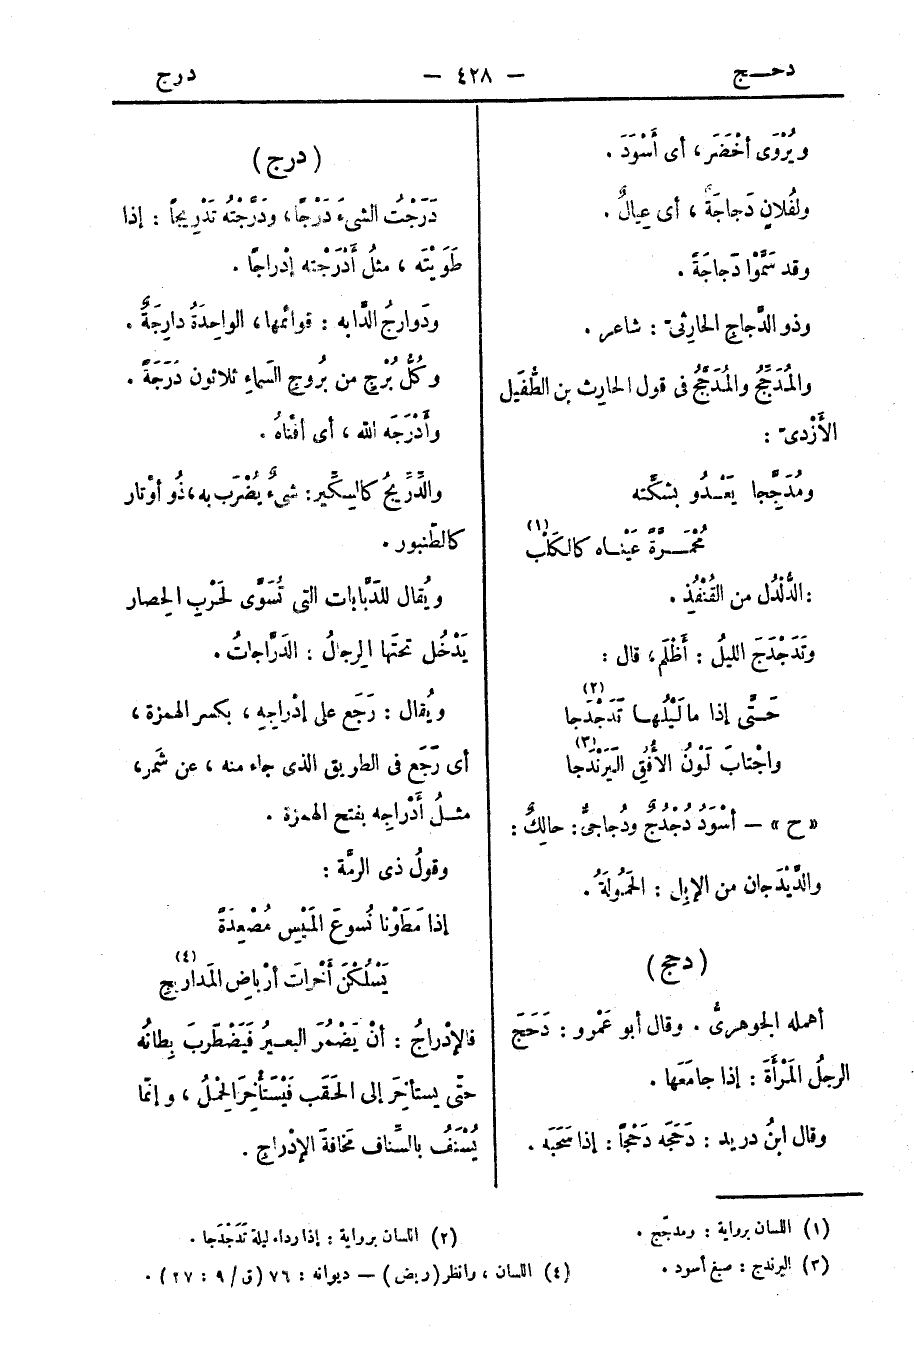 دحـــج
— ٤٢٨ —
درج
ويُرْوَى أخْضَر، أى أَسْوَدَ.
ولفُلانٍ دَجاجَةٌ، أى عِيالٌ.
وقد سَمَّوْا دَجاجَةً.
وذو الدَّجاجِ الحارثىّ : شاعر.
والمُدَجَّجُ والمُدَجِّجُ فى قول الحارث بن الطُّفَيل
الأَزْدىّ :
ومُدَجِّجا يَعْــدُو بشكَّته
مُحْمَــرَّةً عَيْنـاه كالكَلْب (١)
: الدُّلْدُل من القُنْفُذِ.
وتَدَجْدَجَ الليلُ : أَظْلَم، قال :
حَـتَّى إذا ما لَيْلُهـا تَدَجْدَجا (٢)
واجْتابَ لَوْنُ الأُفُقِ اليَرَنْدَجا (٣)
« ح » — أسْوَدُ دُجْدُجٌ ودُجاجىٌّ : حالِكٌ :
والدَّيْدَجان من الإِبِل : الحَمُولَةُ.
( دحج )
أهمله الجوهرىُّ. وقال أبو عَمْرو : دَحَجَ
الرجلُ المَرْأَةَ : إذا جامَعَها.
وقال ابنُ دريد : دَحَجَه دَحْجًا : إذا سَحَبَه.
( درج )
دَرَجْتُ الشىءَ دَرْجًا، ودَرَّجْتُه تَدْرِيجًا : إذا
طَوَيْتَه، مثلُ أَدْرَجْته إدْراجًا.
ودَوارجُ الدَّابه : قوائمها، الواحِدَةُ دارِجَةٌ.
وكُلُّ بُرْجٍ من بُروجِ السَماءِ ثلاثون دَرَجَةً.
وأَدْرَجَه الله، أى أفْناهُ.
والدِّرِّيجُ كالسِكِّير: شىءٌ يُضْرَب به، ذُو أوْتار
كالطّنبور.
ويُقال للدَّبّابات التى تُسَوَّى لحَرْبِ الحِصار
يَدْخُل تحتَها الرِجالُ : الدَرَّاجاتُ.
ويُقال : رَجَع على إدْراجِه، بكسر الهمزة،
أى رَجَع فى الطريق الذى جاء منه، عن شَمر،
مثـلُ أَدْراجِه بفتح الهمزة.
وقولُ ذى الرمَّة :
إذا مَطَوْنا نُسوعَ المَيْسِ مُصْعِدَةً
يَسْلُكْنَ أَخْراتَ أرْباضِ المَدارِيجِ (٤)
فالإدْراجُ : أنْ يَضْمُرَ البعــيرُ فَيَضْطَرِبَ بِطانُه
حتّى يستأخِرَ إلى الحَقَب فَيَسْتَأْخِرَ الحِمْلُ، وإنّما
يُسْنَفُ بالسِّناف مَخافَةَ الإِدْراجِ.
(١) اللسان برواية : ومدجّج.
(٢) اللسان برواية : إذا رداء ليلة تَدَجْدَجا.
(٣) اليرندج : صبغ أسود.
(٤) اللسان، وانظر (ربض) — ديوانه : ٧٦ (ق/ ٩ : ٢٧).